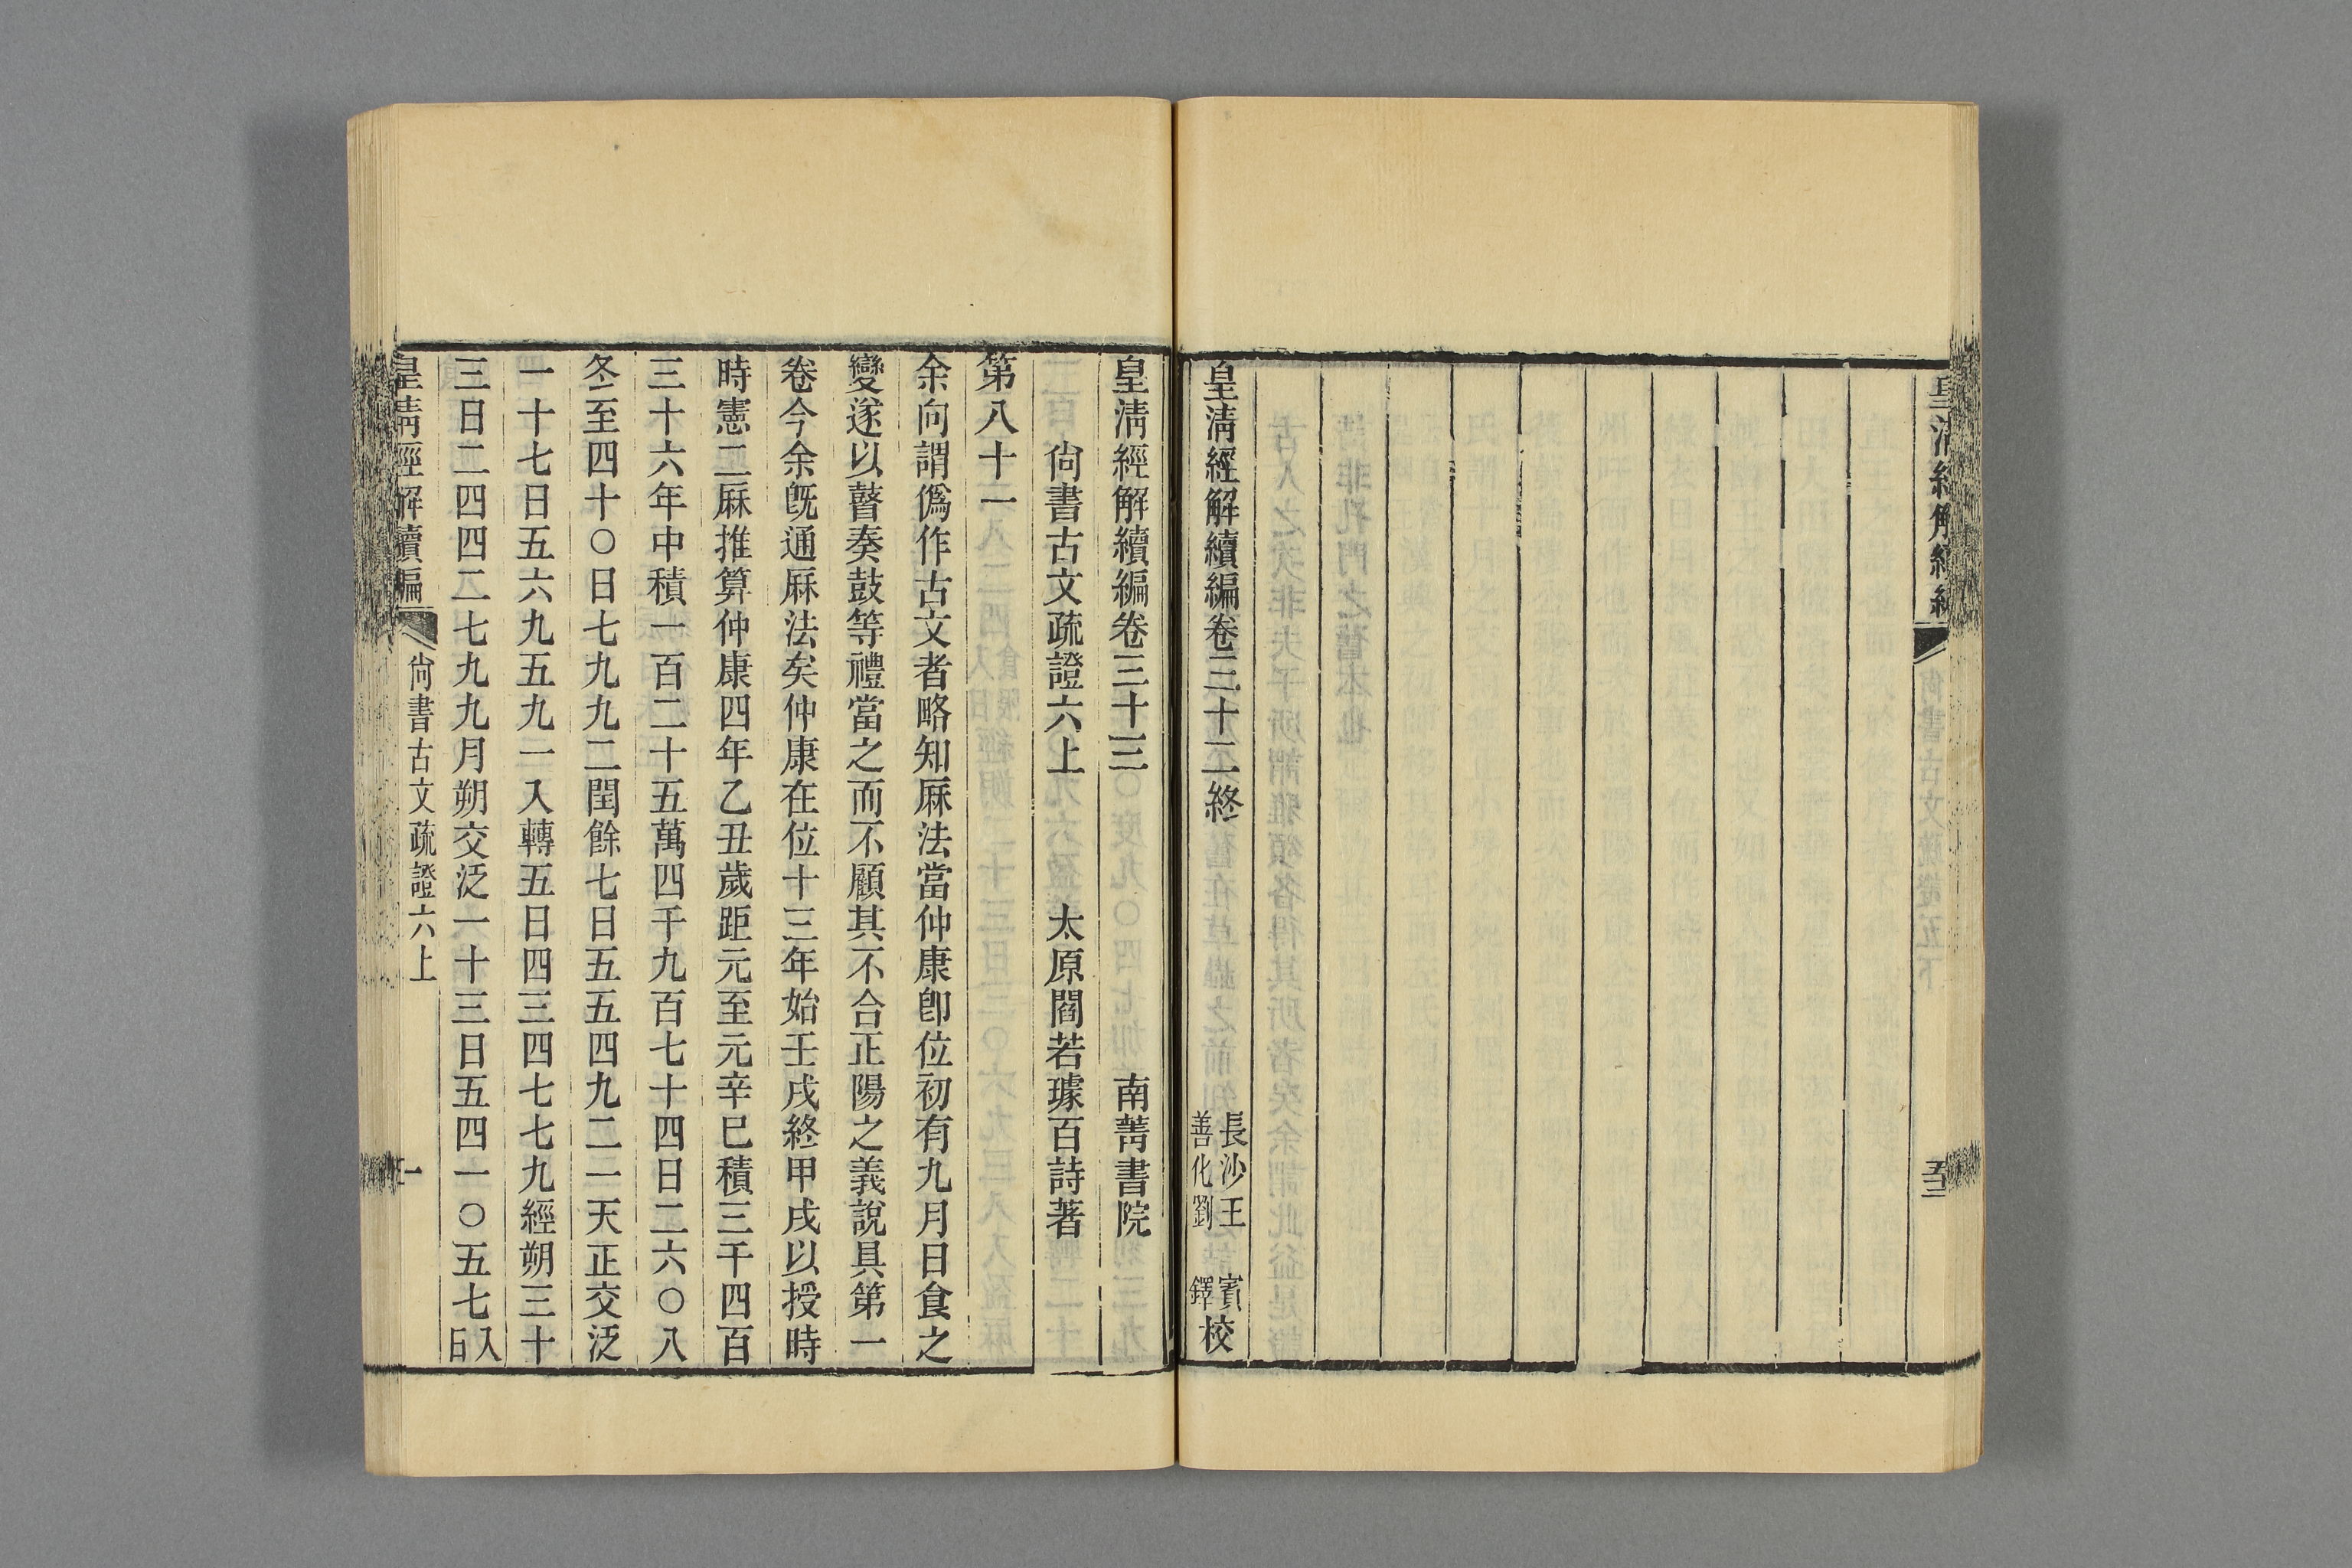 皇清經解續編卷三十二終
長沙王　賓
善化劉　鐸
校
皇清經解續編卷三十三　南菁書院
尙書古文疏證六上　太原閻若璩百詩著
第八十一
余向謂僞作古文者略知厤法當仲康卽位初有九月日食之
變遂以瞽奏鼓等禮當之而不顧其不合正陽之義說具第一
卷今余旣通厤法矣仲康在位十三年始壬戌終甲戌以授時
時憲二厤推算仲康四年乙丑歲距元至元辛巳積三千四百
三十六年中積一百二十五萬四千九百七十四日二六〇八
冬至四十〇日七九九二閏餘七日五五四九二一天正交泛
一十七日五六九五九一入轉五日四三四七七九經朔三十
三日二四四二七九九月朔交泛一十三日五四一〇五七入
日
皇清經解續編
尙書古文疏證六上
一